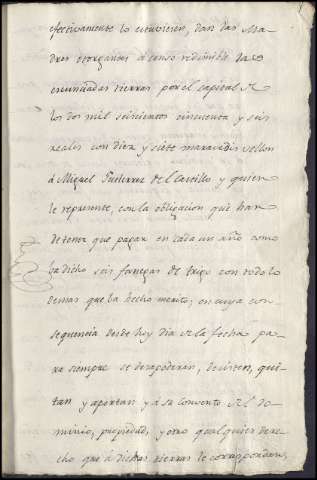 efectivamente lo estuviesen, dan las Ma-
dres otorgantes á censo redimible las
enunciadas tierras por el capital de
los dos mil seiscientos cincuenta y seis
reales con diez y siete maravedis vellon
á Miguel Gutierrez del Castillo y quien
le represente, con la obligacion que han
de tener que pagar en cada un año como
ba dicho seis fanegas de trigo con todo lo
demas que ba hecho merito; en cuya con
sequencia desde hoy dia de la fecha pa-
ra siempre se desapoderan, desisten, qui-
tan y apartan y á su convento del do-
minio, propiedad, y otro qualquier dere-
cho que á dichas tierras le correspondan,